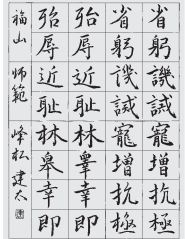 省躬譏誡寵增抗極
省躬譏誡寵增抗極
殆辱近耻林皐幸即
殆辱近耻林皋幸即
福山 師範 峰松建太